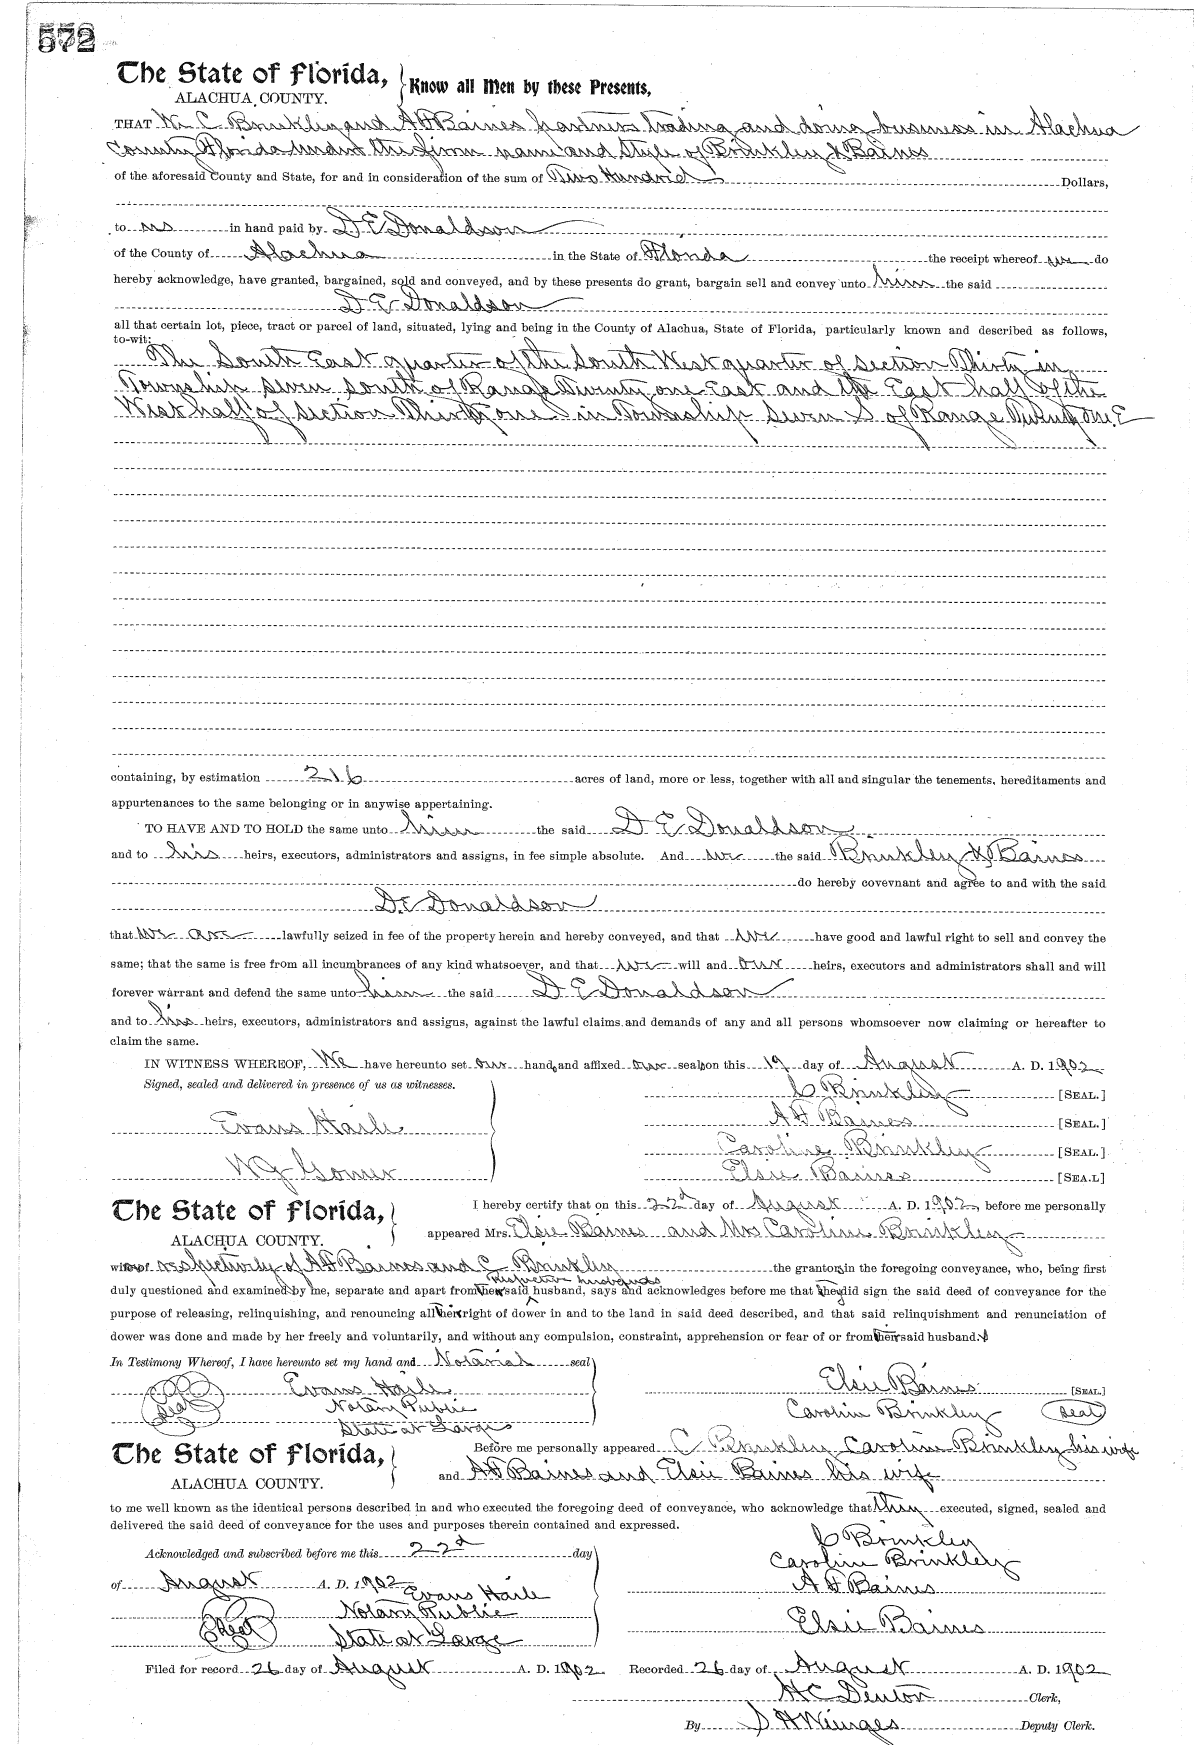 572
The State of Florida,
ALACHUA COUNTY.
Know all Men by these Presents,
THAT We C. Brinkley and A F Baines partners trading and doing business in Alachua
County Florida under the firm name and style of Brinkley & Baines
of the aforesaid County and State, for and in consideration of the sum of Two Hundred Dollars,
to us in hand paid by D E Donaldson
of the County of Alachua in the State of Florida the receipt whereof we do
hereby acknowledge, have granted, bargained, sold and conveyed, and by these presents do grant, bargain sell and convey unto him the said
D E Donaldson
all that certain lot, piece, tract or parcel of land, situated, lying and being in the County of Alachua, State of Florida, particularly known and described as follows,
to-wit:
The South East quarter of the South West quarter of section Thirty in
Township seven south of Range Twenty one East and the East half of the
West half of section Thirty one in Township Seven S of Range Twenty One E
containing, by estimation 216 acres of land, more or less, together with all and singular the tenements, hereditaments and
appurtenances to the same belonging or in anywise appertaining.
TO HAVE AND TO HOLD the same unto him the said D E Donaldson
and to his heirs, executors, administrators and assigns, in fee simple absolute. And we the said Brinkley & Baines
do hereby covevnant and agree to and with the said
D. E Donaldson
that we are lawfully seized in fee of the property herein and hereby conveyed, and that we have good and lawful right to sell and convey the
same; that the same is free from all incumbrances of any kind whatsoever, and that we will and our heirs, executors and administrators shall and will
forever warrant and defend the same unto him the said D E Donaldson
and to his heirs, executors, administrators and assigns, against the lawful claims and demands of any and all persons whomsoever now claiming or hereafter to
claim the same.
IN WITNESS WHEREOF, We have hereunto set our hands and affixed our seals on this 19 day of August A. D. 1902
Signed, sealed and delivered in presence of us as witnesses.
C Brinkley [SEAL.]
Evans Haile A F Baines [SEAL.]
Caroline Brinkley [SEAL.]
Elsie Baines [SEAL.]
The State of Florida,
ALACHUA COUNTY.
I hereby certify that on this 22d day of August A. D. 1902, before me personally
appeared Mrs. Elsie Baines and Mrs Caroline Brinkley
wives respectively of A F Baines and C Brinkley the grantors in the foregoing conveyance, who, being first
respective husbands
duly questioned and examined by me, separate and apart from their said husband, says and acknowledges before me that they did sign the said deed of conveyance for the
purpose of releasing, relinquishing, and renouncing all their right of dower in and to the land in said deed described, and that said relinquishment and renunciation of
dower was done and made by her freely and voluntarily, and without any compulsion, constraint, apprehension or fear of or from their said husbands
In Testimony Whereof, I have hereunto set my hand and Notarial seal
Evans Haile Elsie Baines [SEAL.]
Seal Notary Public Caroline Brinkley Seal
State at Large
The State of Florida,
ALACHUA COUNTY.
Before me personally appeared C Brinkley Caroline Brinkley his wife
and A F Baines and Elsie Baines his wife
to me well known as the identical persons described in and who executed the foregoing deed of conveyance, who acknowledge that they executed, signed, sealed and
delivered the said deed of conveyance for the uses and purposes therein contained and expressed.
C Brinkley
Acknowledged and subscribed before me this 22d day
Caroline Brinkley
of August A. D. 1902 A F Baines
Evans Haile
Notary Public
Elsie Baines
Seal State at Large
Filed for record 26 day of August A. D. 1902 Recorded 26 day of August A. D. 1902
H C Denton Clerk,
By Deputy Clerk.